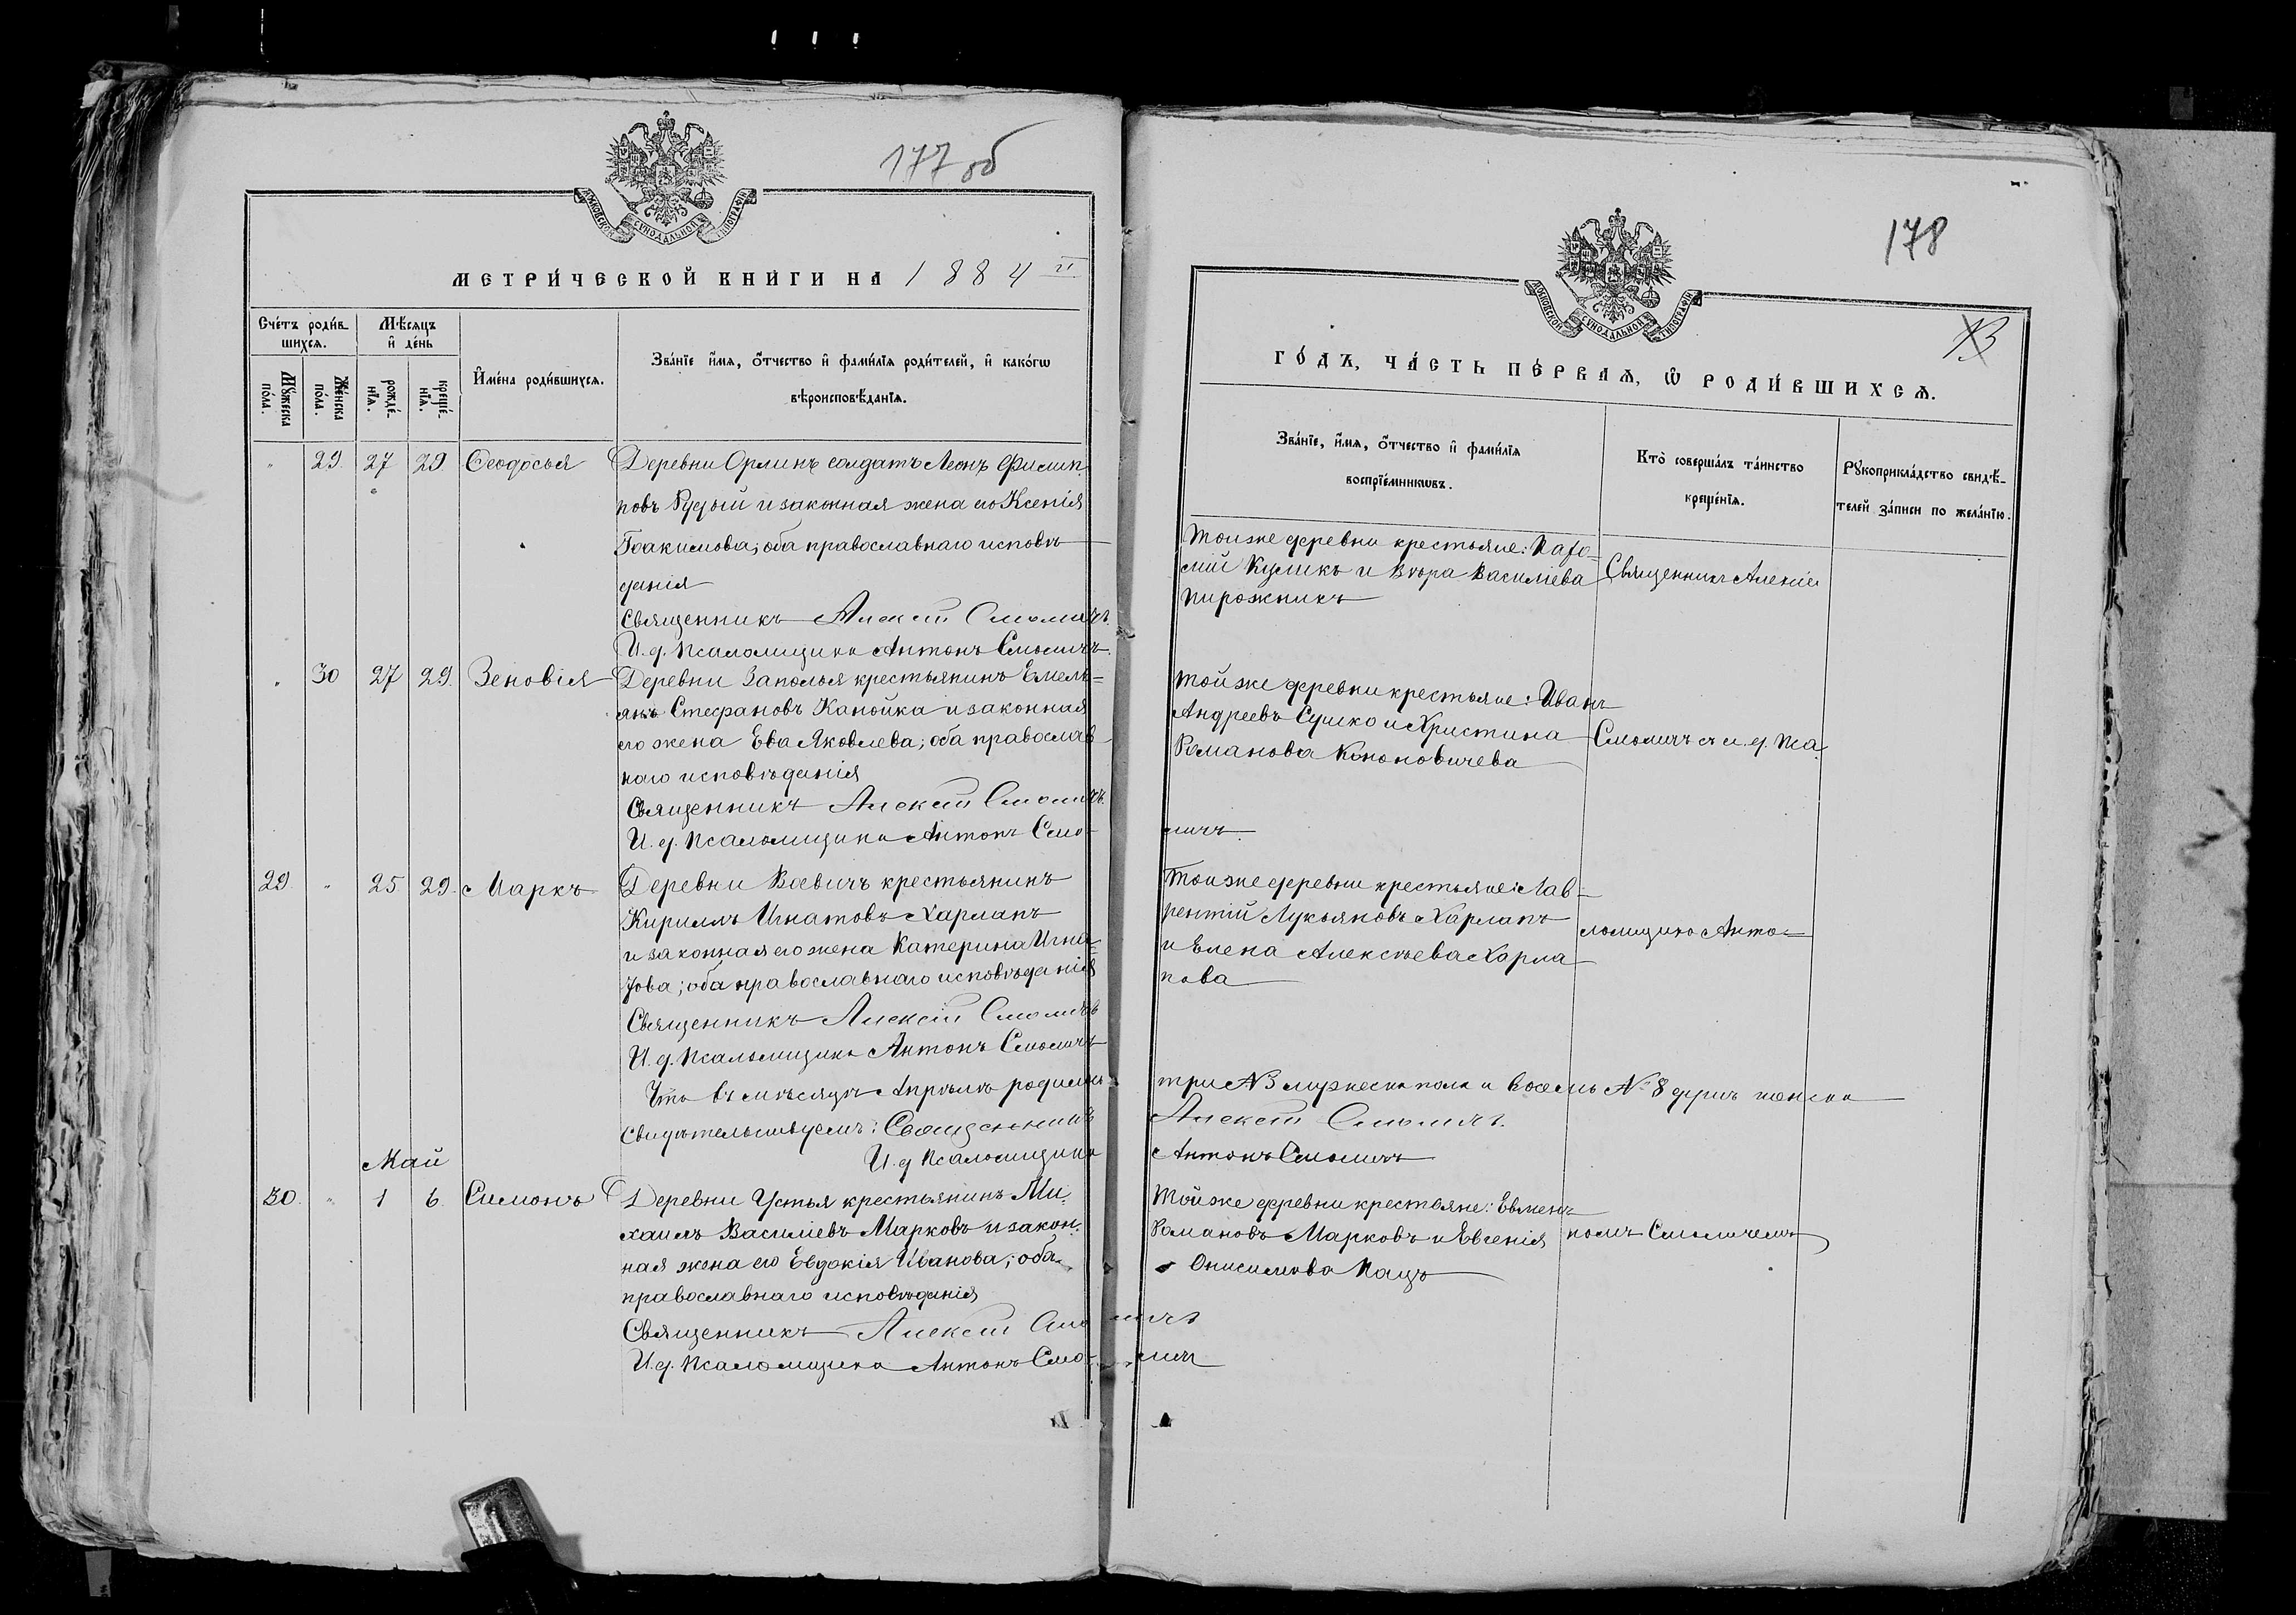 177 об
МОСКОВСКОЙ СѴНОДАЛЬНОЙ ТИПОГРАФІИ
МЕТРИ́ЧЕСКОЙ КНИ́ГИ НА 1884 й
Сче́тъ роди́в-
шихся.
Мѣ́сяцъ
и҆ де́нь
Мꙋ́жеска
по́ла.
Же́нска
по́ла.
рожде́-
нїѧ.
креще́-
нїѧ.
И҆мена̀ роди́вшихсѧ.
Зва́нїе и҆́мѧ, ѻ҆́тчество и҆ фами́лїѧ роди́телей, и҆ како́гѡ
вѣроисповѣ́данїѧ.
" 29. 27 29 Ѳеодосья Деревни Орлинъ солдатъ Леонъ Филип-
повъ Рудый и законная жена его Ксенія
Іоакимова; оба православнаго исповѣ-
данія
Священникъ Алексій Смоличъ.
И. д. Псаломщика Антонъ Смоличъ.
" 30 27 29. Зеновія Деревни Заполья крестьянинъ Емель=
янъ Стефановъ Канойка и законная
его жена Ева Яковлева; оба православ-
наго исповѣданія
Священникъ Алексій Смоличъ.
И. д. Псаломщика Антонъ Смо-
29. " 25 29. Маркъ Деревни Воевичъ крестьянинъ
Кириллъ Игнатовъ Харлапъ
и законная его жена Катерина Игна-
това; оба православнаго исповѣданія
Священникъ Алексій Смоличъ
И. д. Псаломщика Антонъ Смоличъ
Что въ мѣсяцѣ Апрѣлѣ родилось
свидѣтельствуемъ: Священникъ
И. д Псаломщика
Май
30. " 1 6. Симонъ Деревни Устья крестьянинъ Ми-
хаилъ Василіевъ Марковъ и закон-
ная жена его Евдокія Иванова; оба
православнаго исповѣданія
Священникъ Алексій Смо
И. д. Псаломщика Антонъ Смо-
178
МОСКОВСКОЙ СѴНОДАЛЬНОЙ ТИПОГРАФІИ
13
ГО́ДЪ, ЧА́СТЬ ПЕ́РВАѦ, Ѡ҆ РОДИ́ВШИХСѦ.
Зва́нїе, и҆́мѧ, ѻ҆́тчество и҆ фами́лїѧ
воспрїе́мникѡвъ.
Кто̀ соверша́лъ та́инство
креще́нїѧ.
Рꙋкоприкла́дство свидѣ́-
телей за́писи по жела́нїю.
Тойже деревни крестьяне: Пафо-
мій Куликъ и Вѣра Василіева
Пирожникъ
Священникъ Алексій
Тойже деревни крестьяне: Иванъ
Андреевъ Сушко и Христина
Романова Кононовичева
Смоличъ съ и. д. Пса-
личъ.
Тойже деревни крестьяне: Лав-
рентій Лукьяновъ Харлапъ
и Елена Алексѣева Харла-
пова
ломщика Анто-
три №3 мужеска пола и восемь №8 душъ женска
Алексій Смоличъ.
Антонъ Смоличъ
Тойже деревни крестьяне: Евменъ
Романовъ Марковъ и Евгенія
Онисимова Пацъ
номъ Смоличемъ
личъ
личъ